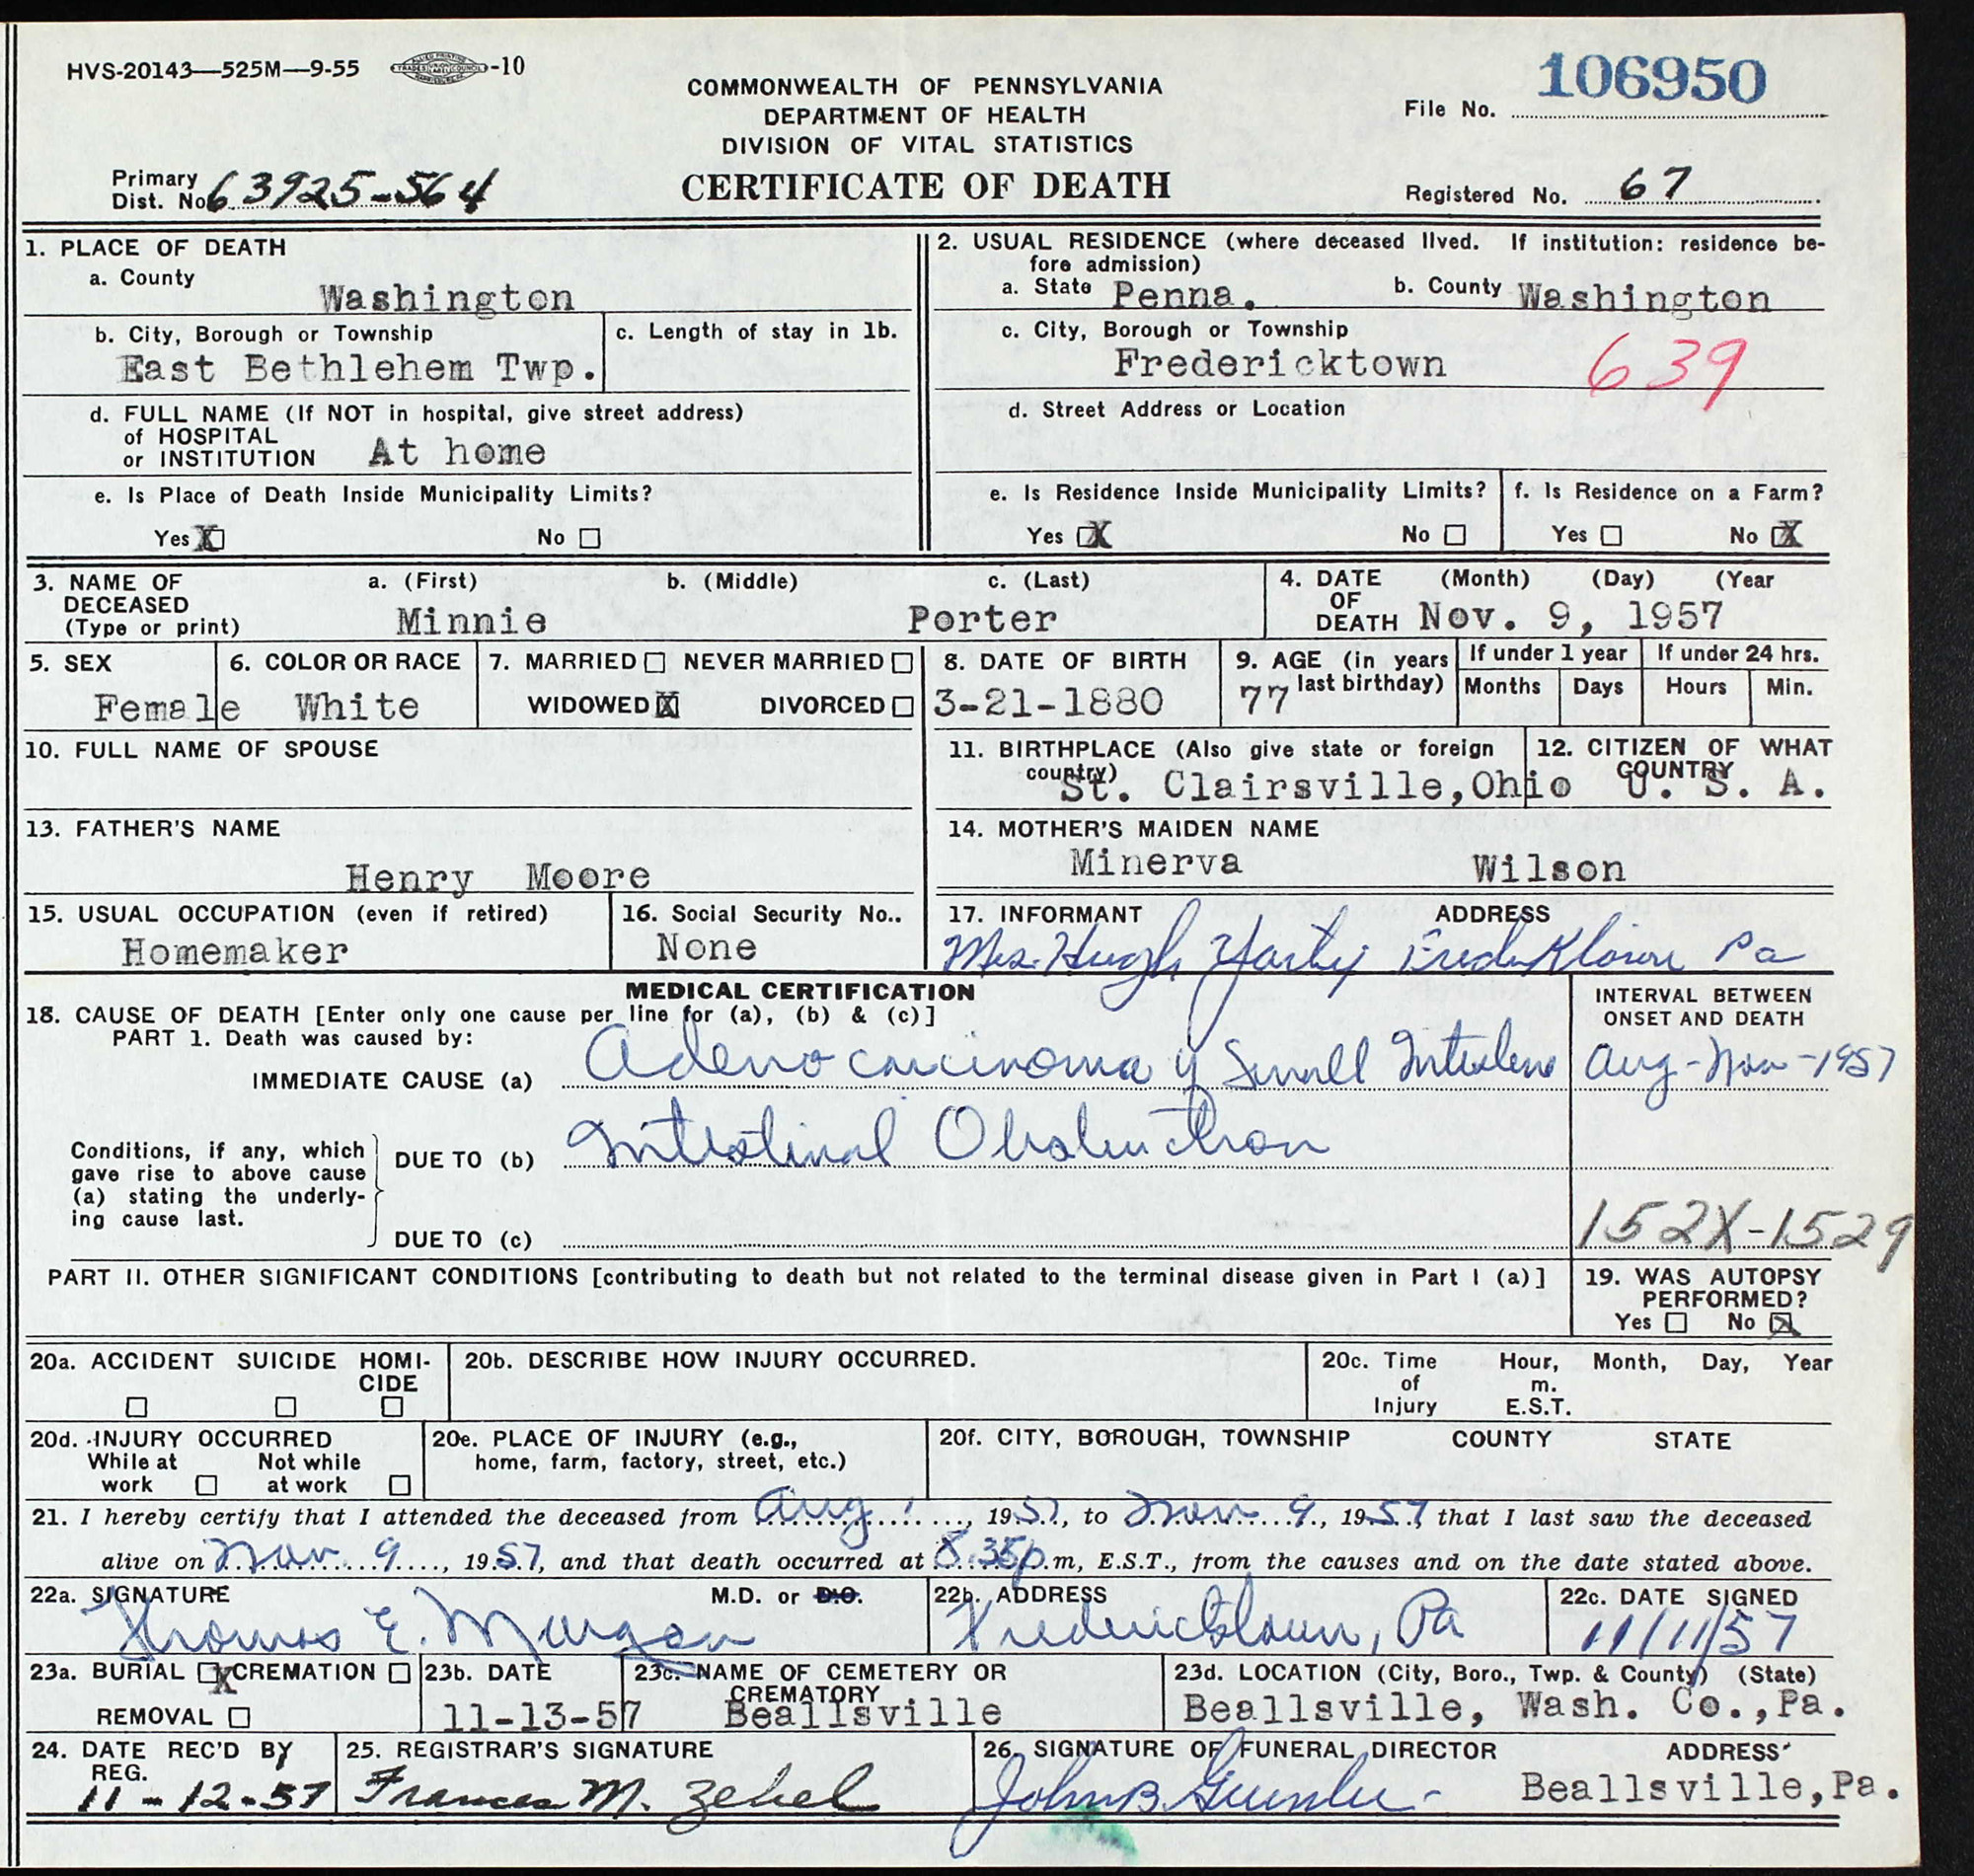 HVS-20143—525M—9-55 -10
COMMONWEALTH OF PENNSYLVANIA
DEPARTMENT OF HEALTH
DIVISION OF VITAL STATISTICS
CERTIFICATE OF DEATH
File No. 106950
Primary
Dist. No. 63925-564
Registered No. 67
1. PLACE OF DEATH
a. County
Washington
b. City, Borough or Township
East Bethlehem Twp.
c. Length of stay in 1b.
d. FULL NAME (If NOT in hospital, give street address)
of HOSPITAL
or INSTITUTION At home
e. Is Place of Death Inside Municipality Limits?
Yes X No
2. USUAL RESIDENCE (where deceased lived. If institution: residence be-
fore admission)
a. State Penna. b. County Washington
c. City, Borough or Township
Fredericktown 639
d. Street Address or Location
e. Is Residence Inside Municipality Limits?
Yes X No
f. Is Residence on a Farm?
Yes No X
3. NAME OF
DECEASED
(Type or print)
a. (First) b. (Middle) c. (Last)
Minnie Porter
4. DATE
OF
DEATH
(Month) (Day) (Year
Nov. 9, 1957
5. SEX
Female
6. COLOR OR RACE
White
7. MARRIED NEVER MARRIED
WIDOWED X DIVORCED
8. DATE OF BIRTH
3-21-1880
9. AGE (in years
last birthday)
77
If under 1 year
Months Days
If under 24 hrs.
Hours Min.
10. FULL NAME OF SPOUSE
11. BIRTHPLACE (Also give state or foreign
country)
St. Clairsville,Ohio
12. CITIZEN OF WHAT
COUNTRY
U. S. A.
13. FATHER'S NAME
Henry Moore
14. MOTHER'S MAIDEN NAME
Minerva Wilson
15. USUAL OCCUPATION (even if retired)
Homemaker
16. Social Security No..
None
17. INFORMANT ADDRESS
Mrs. Hugh Fredericktown Pa
MEDICAL CERTIFICATION
18. CAUSE OF DEATH [Enter only one cause per line for (a), (b) & (c)]
PART 1. Death was caused by:
IMMEDIATE CAUSE (a) Adeno carcinoma of Small Intestine
INTERVAL BETWEEN
ONSET AND DEATH
Aug-Nov-1957
Conditions, if any, which
gave rise to above cause
(a) stating the underly-
ing cause last.
DUE TO (b) Intestinal Obstruction
DUE TO (c)
152X-1529
PART II. OTHER SIGNIFICANT CONDITIONS [contributing to death but not related to the terminal disease given in Part I (a)]
19. WAS AUTOPSY
PERFORMED?
Yes No X
20a. ACCIDENT SUICIDE HOMI-
CIDE
20b. DESCRIBE HOW INJURY OCCURRED.
20c. Time
of
Injury
Hour, Month, Day, Year
m.
E.S.T.
20d. INJURY OCCURRED
While at Not while
work at work
20e. PLACE OF INJURY (e.g.,
home, farm, factory, street, etc.)
20f. CITY, BOROUGH, TOWNSHIP COUNTY STATE
21. I hereby certify that I attended the deceased from Aug 1, 1957, to Nov 9, 1957, that I last saw the deceased
alive on Nov. 9, 1957, and that death occurred at 8:35p.m, E.S.T., from the causes and on the date stated above.
22a. SIGNATURE M.D. or D.O.
Thomas E. Morgan
22b. ADDRESS
Fredericktown, Pa
22c. DATE SIGNED
11/11/57
23a. BURIAL X CREMATION
REMOVAL
23b. DATE
11-13-57
23c. NAME OF CEMETERY OR
CREMATORY
Beallsville
23d. LOCATION (City, Boro., Twp. & County) (State)
Beallsville, Wash. Co.,Pa.
24. DATE REC'D BY
REG.
11-12-57
25. REGISTRAR'S SIGNATURE
Frances M. Zebel
26. SIGNATURE OF FUNERAL DIRECTOR ADDRESS
John B Beallsville,Pa.